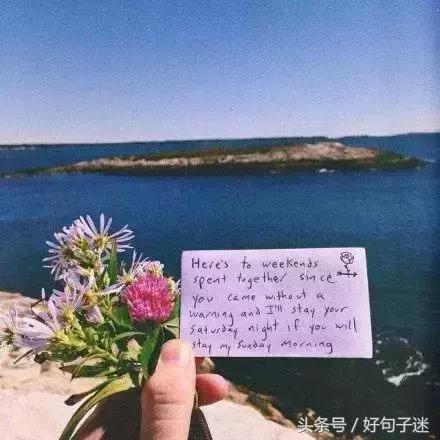 Here's to weekends
spent together since
you came without a
warning and I'll stay your
Saturday night if you will
stay my Sunday Morning
头条号／好句子迷